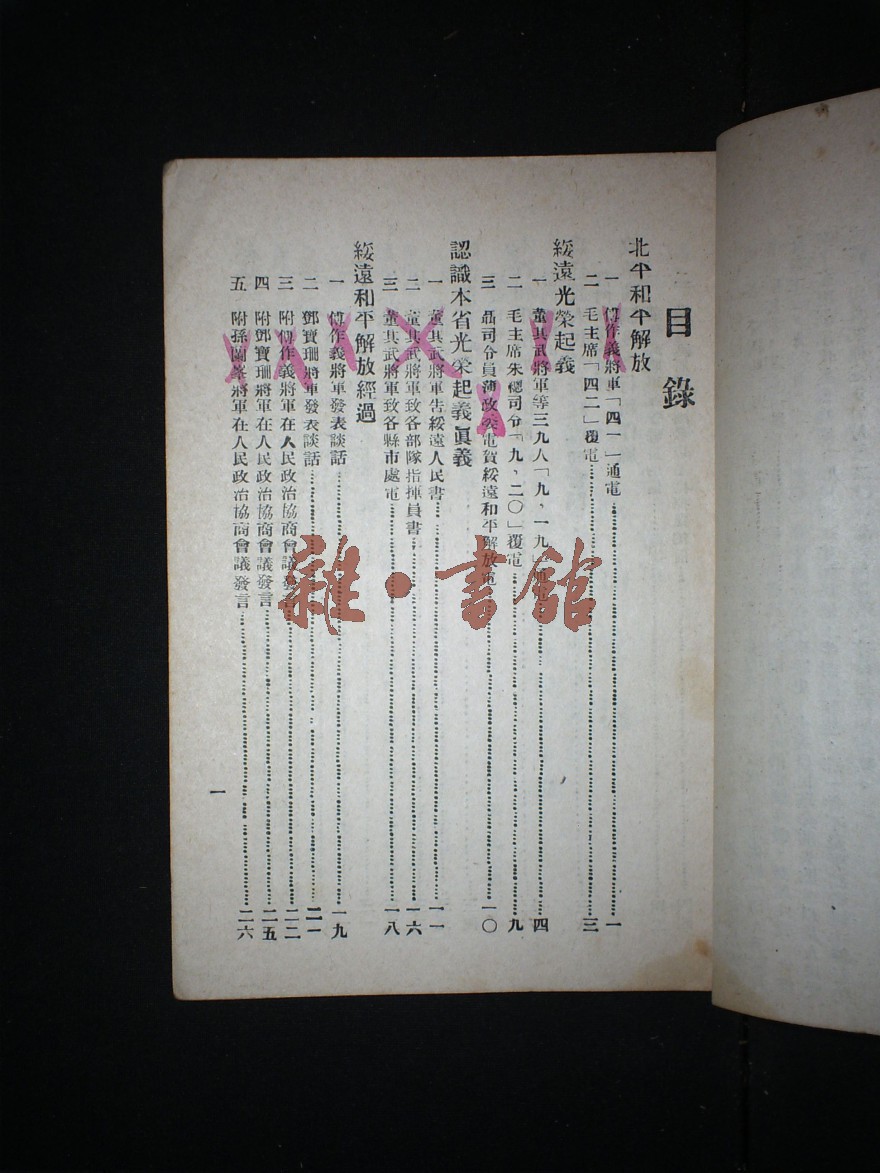 目錄
北平和平解放
一 傅作義將軍「四一」通電 一
二 毛主席「四二」覆電 三
綏遠光榮起義
一 董其武將軍等三九人「九，一九」通電 四
二 毛主席朱總司令「九，二〇」覆電 九
三 聶司令員薄政委電賀綏遠和平解放電 一〇
認識本省光榮起義眞義
一 董其武將軍告綏遠人民書 一一
二 董其武將軍致各部隊指揮員書 一六
三 董其武將軍致各縣市處電 一八
綏遠和平解放經過
一 傅作義將軍發表談話 一九
二 鄧寶珊將軍發表談話 二一
三 附傅作義將軍在人民政治協商會議發言 二二
四 附鄧寶珊將軍在人民政治協商會議發言 二五
五 附孫蘭峯將軍在人民政治協商會議發言 二六
一
雜·書館